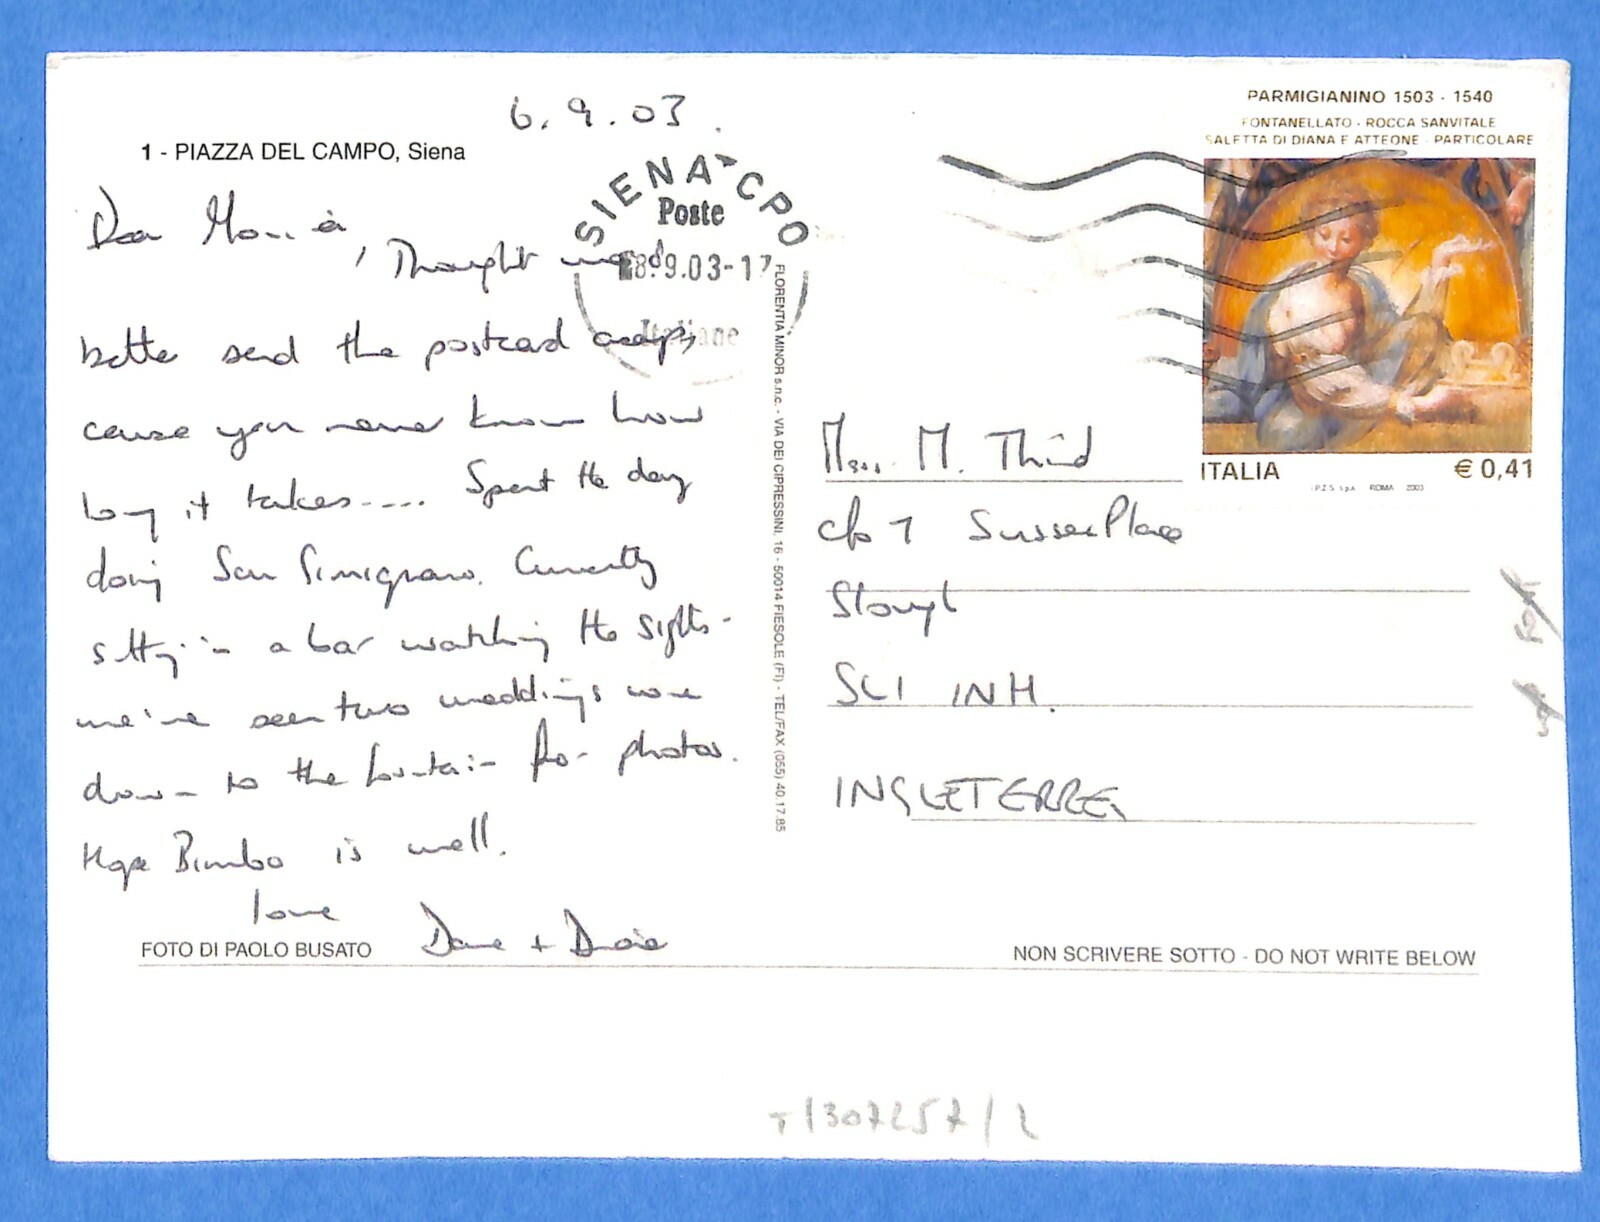 6.9.03.
1 - PIAZZA DEL CAMPO, Siena
Dear
, Thought
better send the postcard
cause you never know how
long it takes..... Spent the day
doing San Gimignano. Currently
sitting in a bar watching the sights -
we've seen two weddings come
down to the fountain for photos.
Hope Bimbo is well.
love
Dave +
FOTO DI PAOLO BUSATO
SIENA CPO
Poste
8.9.03-17
Italiane
FLORENTIA MINOR s.n.c. - VIA DEI CIPRESSINI, 16 - 50014 FIESOLE (FI) - TEL/FAX (055) 40.17.85
PARMIGIANINO 1503 - 1540
FONTANELLATO - ROCCA SANVITALE
SALETTA DI DIANA E ATTEONE - PARTICOLARE
ITALIA € 0,41
I.P.Z.S. s.p.a. ROMA 2003
M. Third
c/o 7 Sussex Place
Slough
SL1 1NH.
INGLETERRE
NON SCRIVERE SOTTO - DO NOT WRITE BELOW
T/307257/2